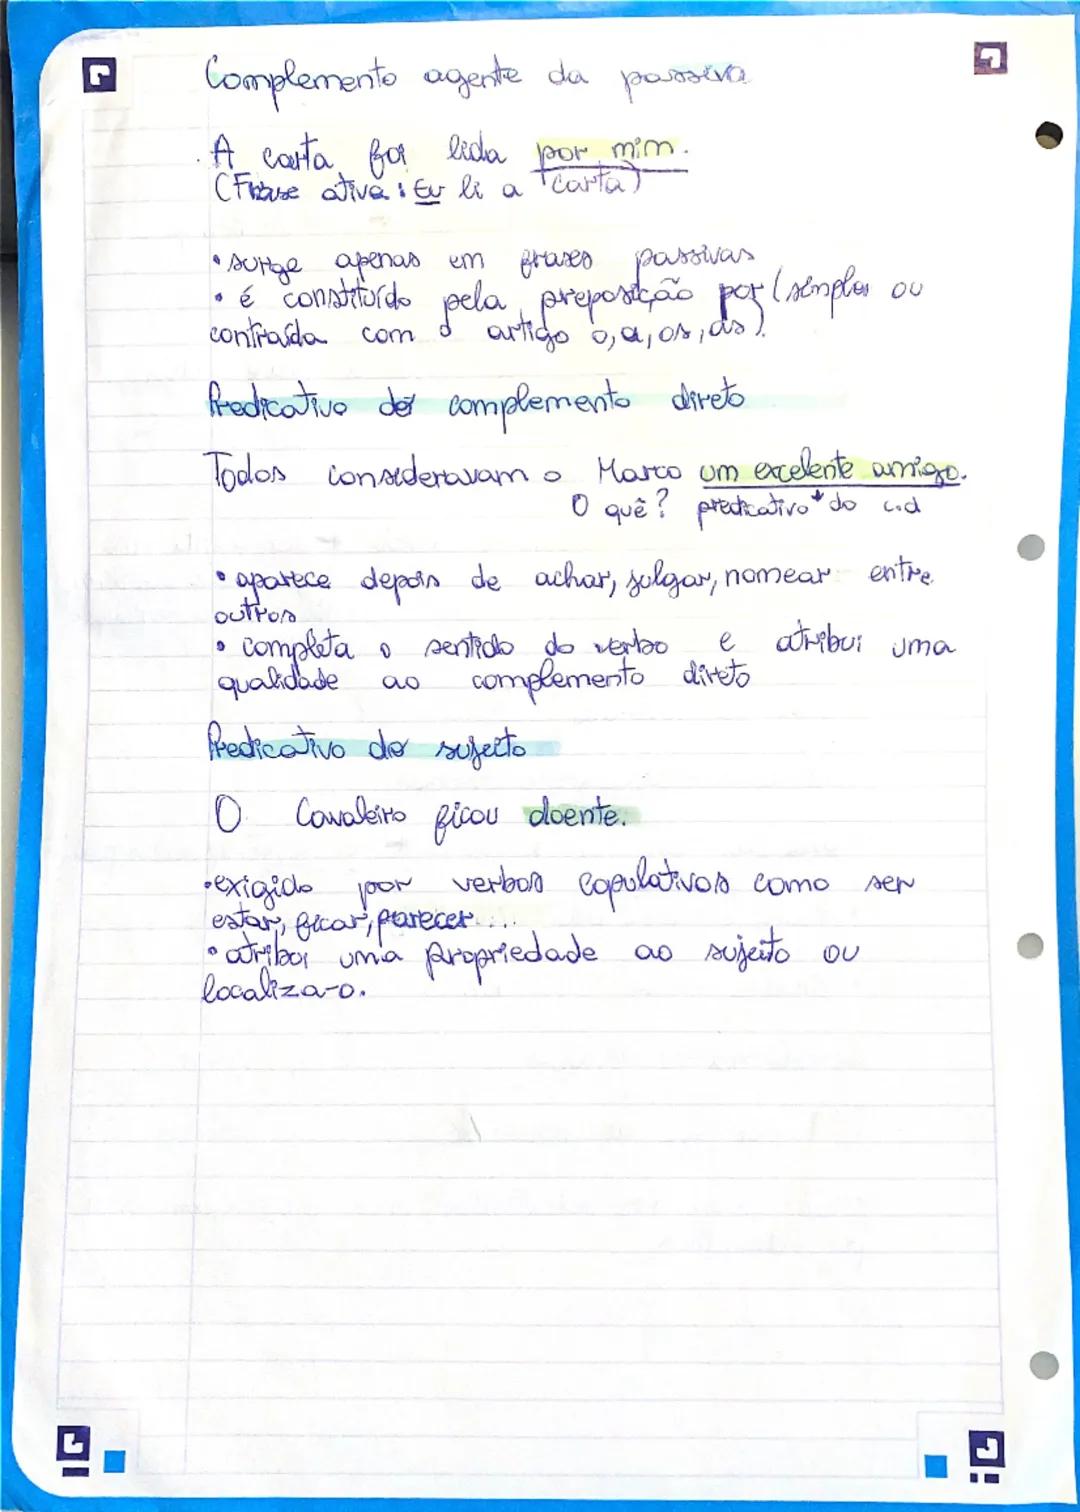 Complemento agente da passiva
A carta foi lida por mim.
(Frase ativa: Eu li a carta)
• surge apenas em frases passivas
• é constituído pela preposição por (simples ou
contraída com o artigo o, a, os, as).
Predicativo do complemento direto
Todos consideravam o Marco um excelente amigo.
O quê? predicativo do c.d
• aparece depois de achar, julgar, nomear entre
outros
• completa o sentido do verbo e atribui uma
qualidade ao complemento direto
Predicativo do sujeito
O Cavaleiro ficou doente.
•exigido por verbos copulativos como ser
estar, ficar, parecer....
• atribui uma propriedade ao sujeito ou
localiza-o.